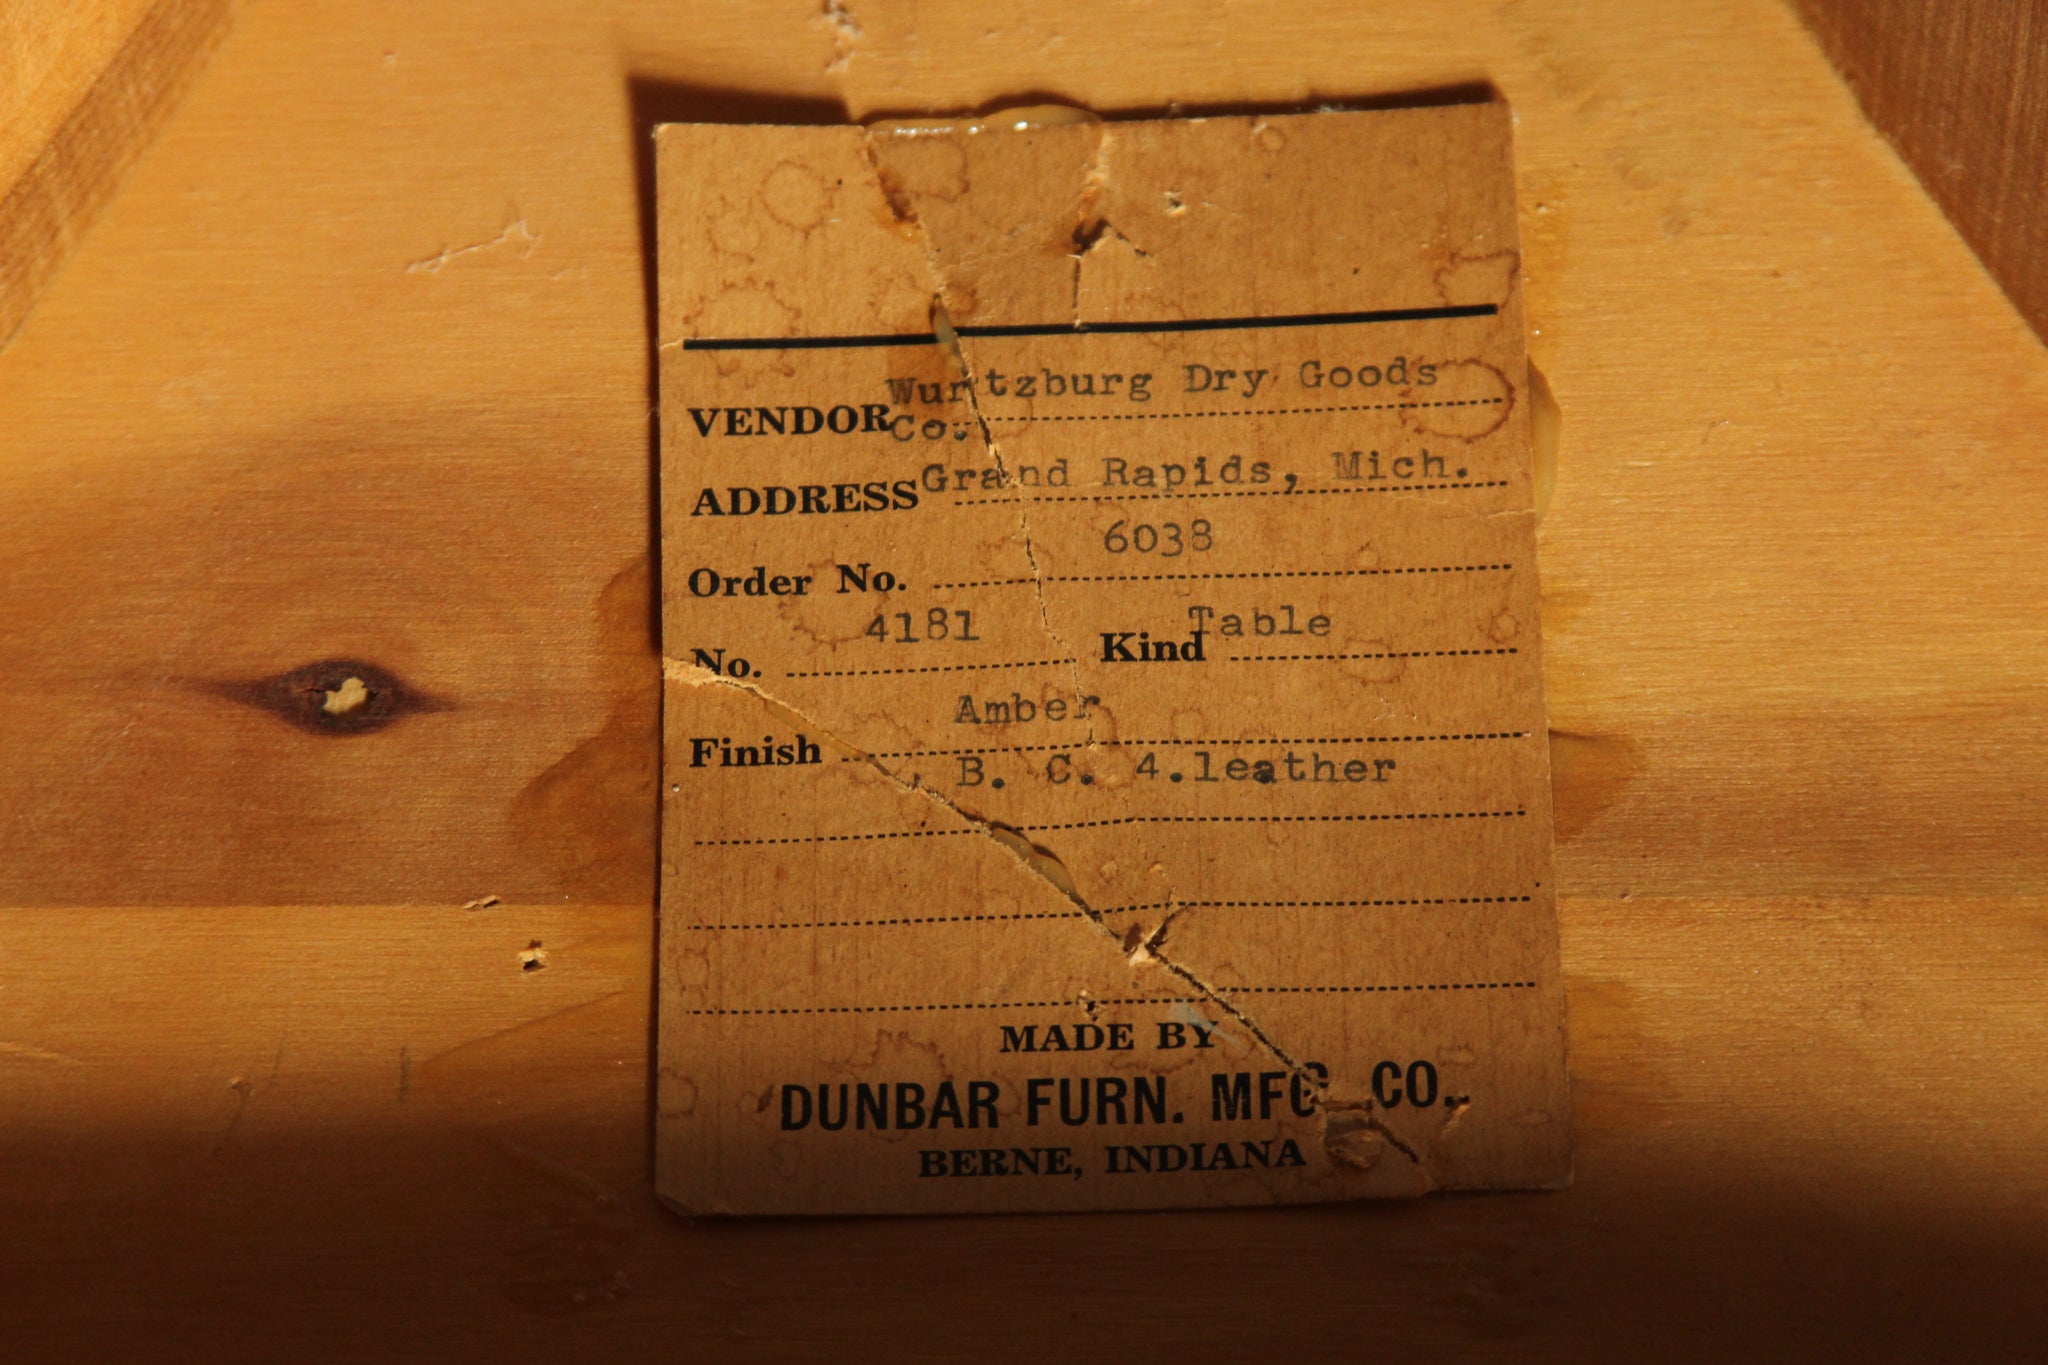 VENDOR Wurtzburg Dry Goods
Co.
ADDRESS Grand Rapids, Mich.
Order No. 6038
No. 4181 Kind Table
Finish Amber
B. C. 4.leather
MADE BY
DUNBAR FURN. MFG. CO.
BERNE, INDIANA